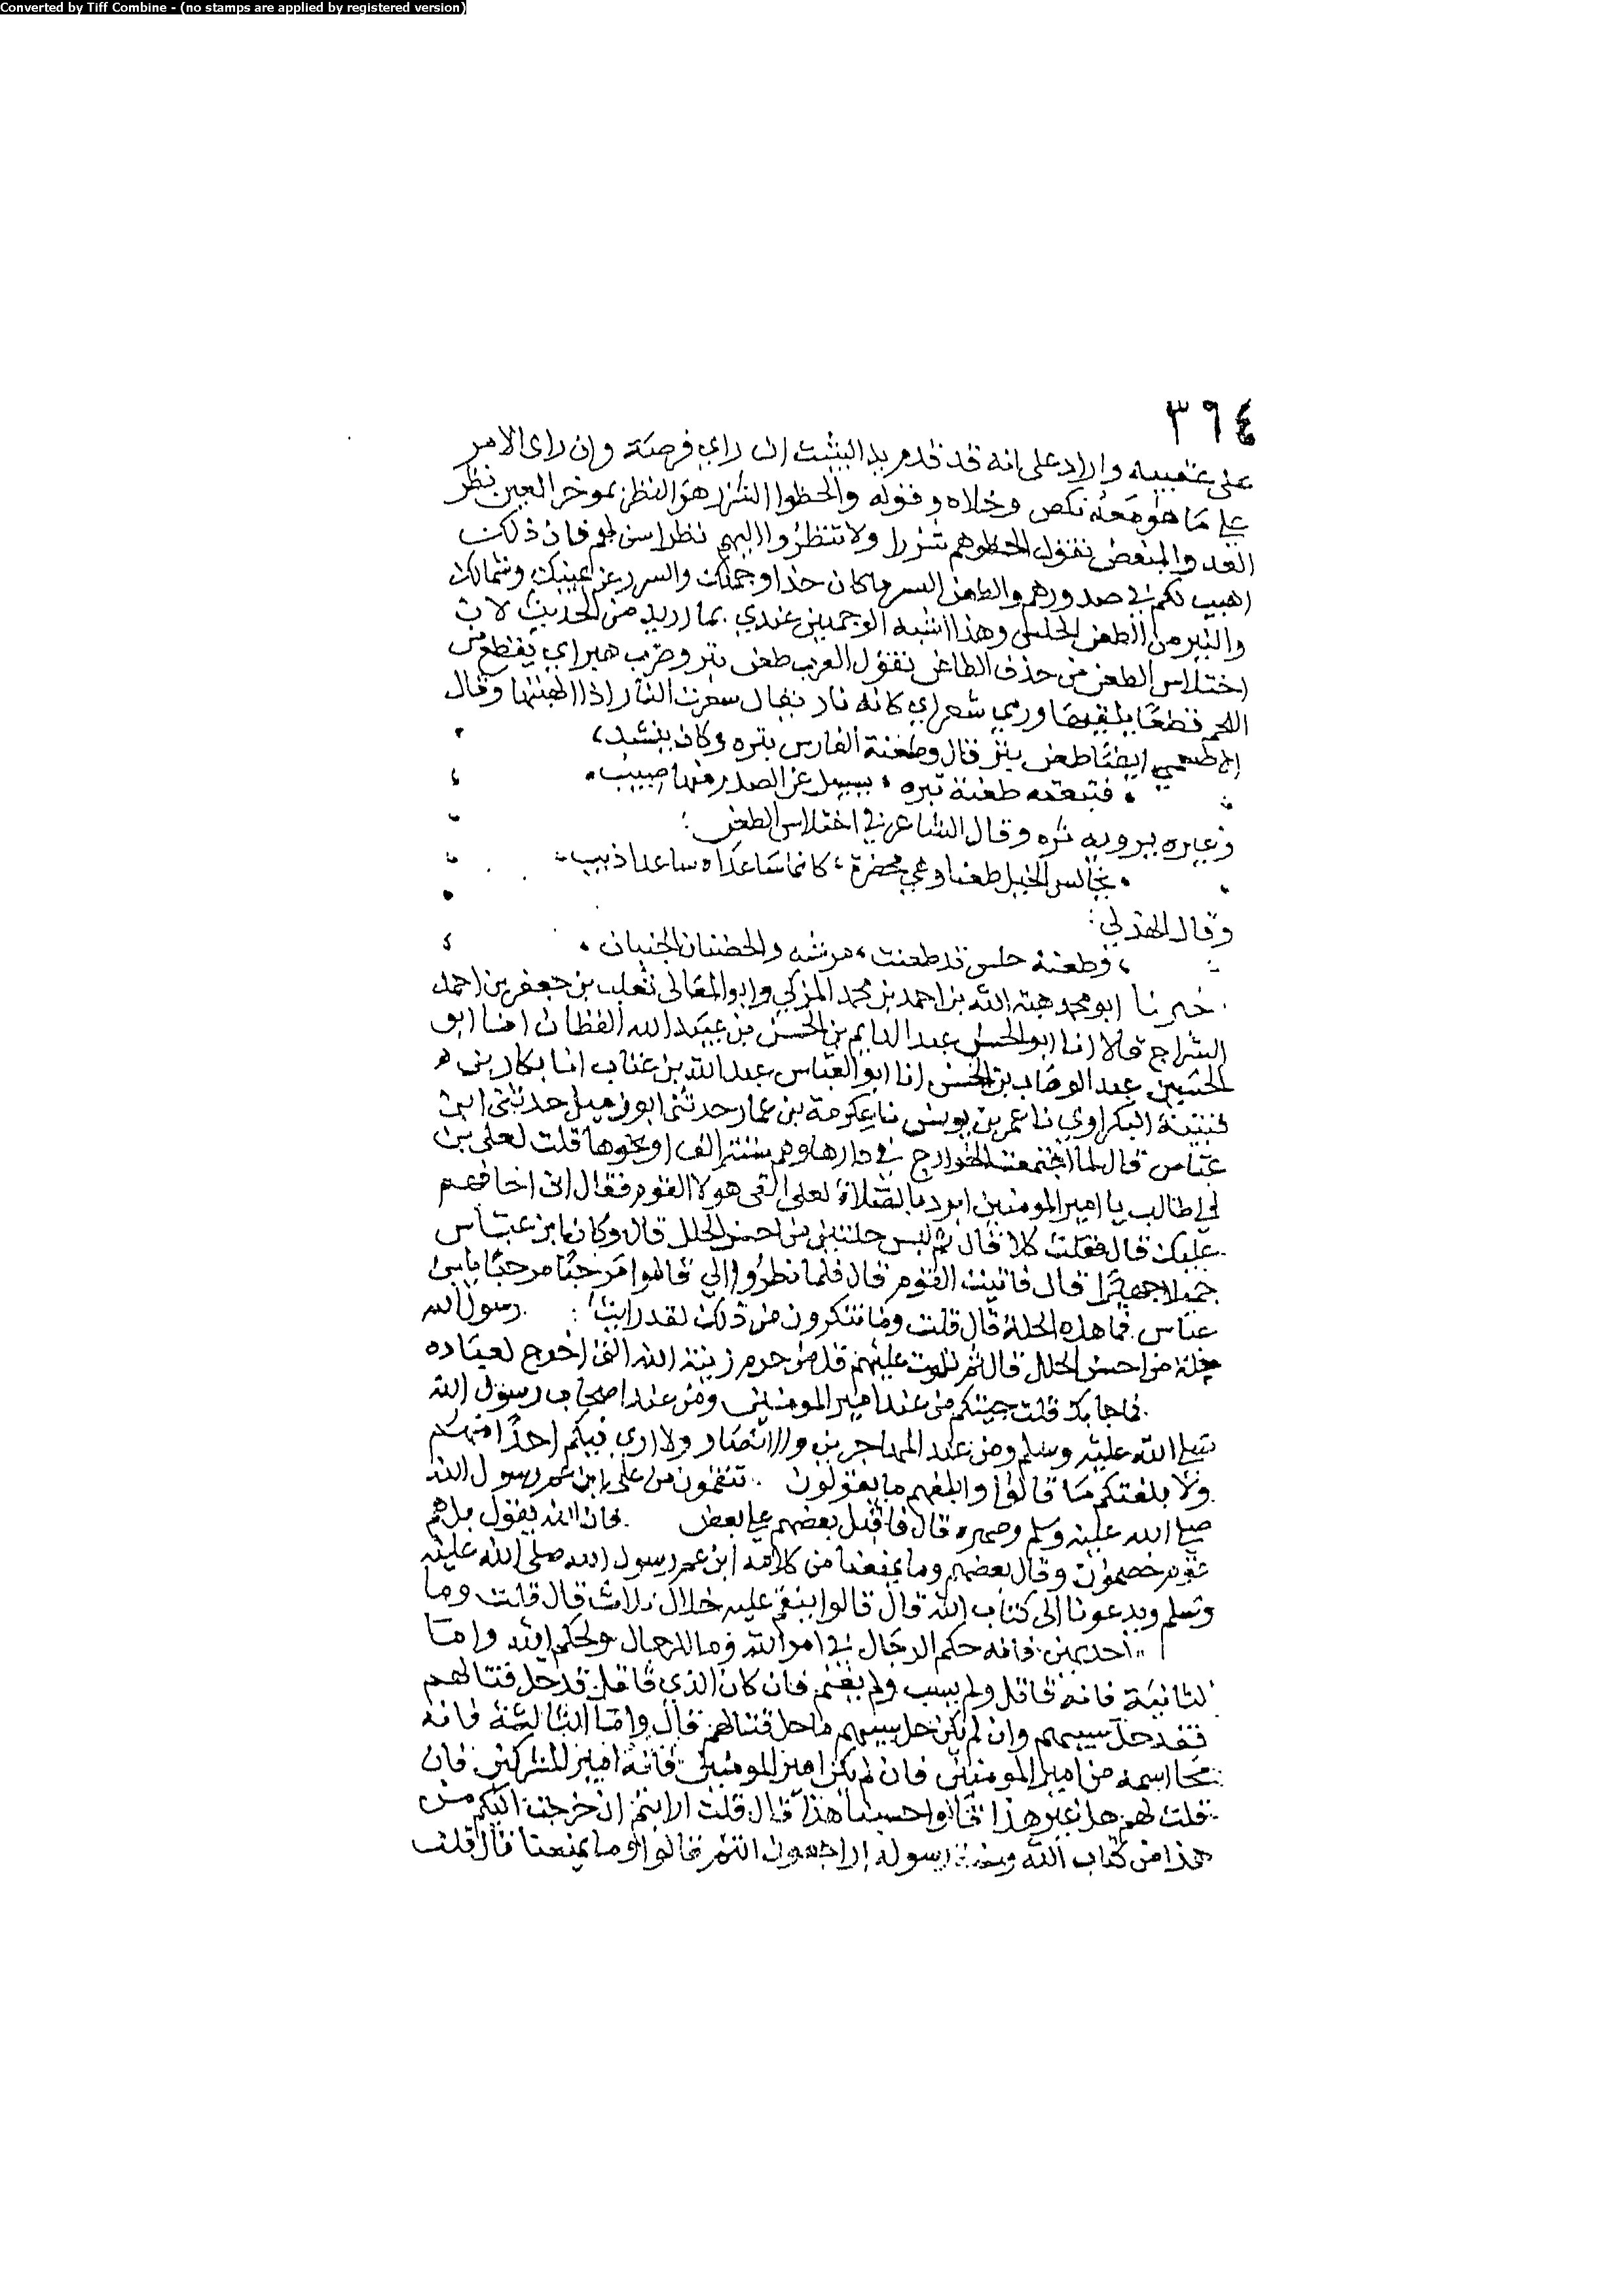 Converted by Tiff Combine - (no stamps are applied by registered version)
٣٩٤
على عقبيه واراد على انه قد قدم يد البيثبت ان راي فرصة وان راى الامر
على ما هو معه نكص وخلاه وقوله والحظوا الشزر هو النظر بموخر العين نظر
العدو والمبغض نقول الحظوهم شزرا ولا تنظروا اليهم نظرا فان ذلك
اهيب لكم في صدورهم والطعن اليسر ما كان حذا وجهك والسرر عن يمينك وشمالك
والنبر من الطعن الخلس وهذا اشبه الوجهين عندي بما اريد من الحديث لان
اختلاس الطعن من حذف الطاعن تقول العرب طعن نتر وضرب هبر اي يقطع من
اللحم قطعا يلقيها ورمي سعر اي كانه نار يقال سعرت النار اذا الهبتها وقال
ايضا طعن ينز قال وطعنة الفارس بتره وكان ينشد
فتبعته طعنة ثره يسيل عن الصدر منها صبيب
وغيره يرويه ثره وقال الشاعر في اختلاس الطعن
يخالس الخيل طعنا وهي محضرة كانما ساعداه ساعدا ذيب
وقال الهذلي
وطعنة خلس قد طعنت مرشه والحضنان الجنبان
خبرنا ابو محمد هبة الله بن احمد بن محمد المزكي وابو المعالى ثعلب بن جعفر بن احمد
السراج قالا انا ابو الحسن عبد الدايم بن الحسن بن عبيد الله القطان انا ابو
الحسين عبد الوهاب بن الحسن انا ابو العباس عبد الله بن عتاب انا بكار بن
قتيبة البكراوي نا عمر بن يونس نا عكرمة بن عمار حدثنى ابو زميل حدثنى ابن
عباس قال لما اجتمعت الخوارج في دارها وهم ستة الاف او نحوها قلت لعلى بن
ابي طالب يا امير المومنين ابرد بالصلاة لعلى القى هولا القوم فقال انى اخافهم
عليك قال فقلت كلا قال ثم لبس حلتين من احسن الحلل قال وكان ابن عباس
جميلا جهيرا قال فاتيت القوم قال فلما نظروا الي قالوا مرحبا مرحبا بابن
عباس فما هذه الحلة قال قلت وما تنكرون من ذلك لقد رايت رسول الله
حلة من احسن الحلل قال ثم تلوت عليهم قل من حرم زينة الله التى اخرج لعباده
فما جا بك قلت جيتكم من عند امير المومنين ومن عند اصحاب رسول الله
صلى الله عليه وسلم ومن عند المهاجرين والانصار ولا اري فيكم احدا منهم
ولا بلغتكم ما قالوا وابلغهم ما يقولون تنقمون من على ابن عم رسول الله
صلى الله عليه وسلم وصهره قال فاقبل بعضهم على بعض فان الله يقول بل هم
قوم خصمون وقال بعضهم وما يمنعنا من كلامه ابن عم رسول الله صلى الله عليه
وسلم ويدعونا الى كتاب الله قال قالوا ينقم عليه خلال ثلاث قال قلت وما
احديهن فانه حكم الرجال في امر الله وما للرجال ولحكم الله واما
الثانية فانه قاتل ولم يسب ولم يغنم فان كان الذي قاتل قد حل قتالهم
فقد حل سبيهم وان لم يكن حل سبيهم ما حل قتالهم قال واما الثالثة فانه
محا اسمه من امير المومنين فان لم يكن امير المومنين فانه امير المشركين فان
قلت لهم هل غير هذا قالوا حسبنا هذا قال قلت ارايتم ان خرجت اليكم من
هذا من كتاب الله وسنة رسوله اراجعون انتم قالوا وما يمنعنا قال قلت